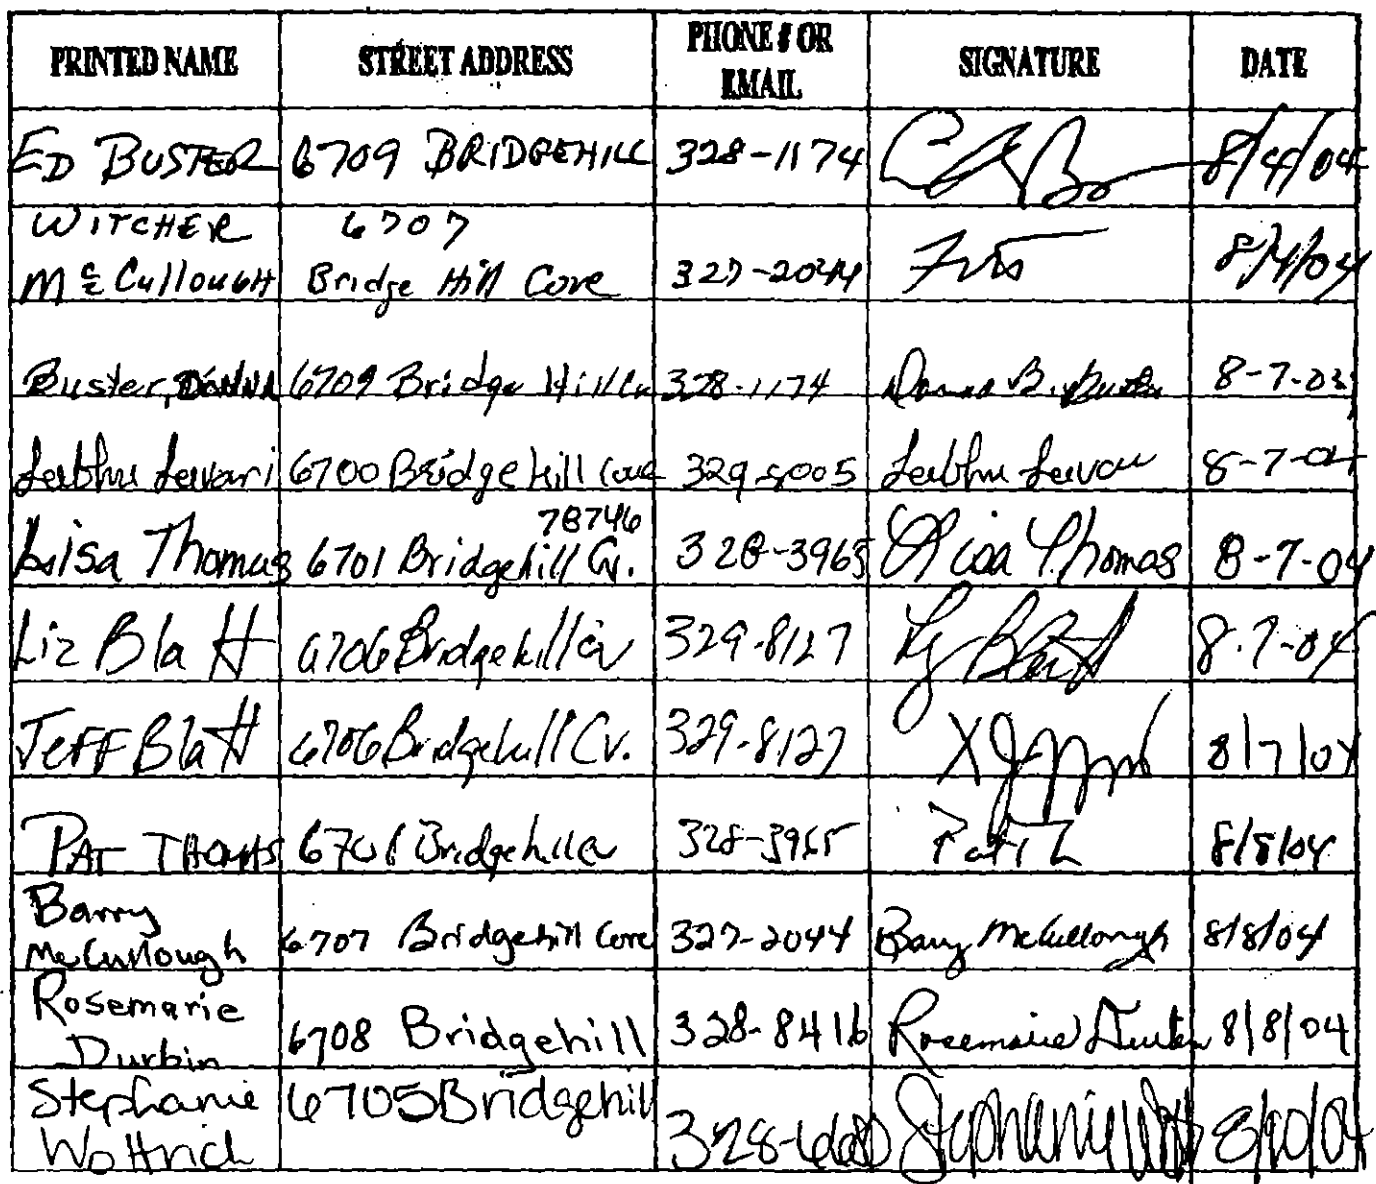 PRINTED NAME STREET ADDRESS PHONE # OR EMAIL SIGNATURE DATE
ED BUSTER 6709 BRIDGEHILL 328-1174 8/4/04
WITCHER 6707
McCullough Bridge Hill Cove 327-2044 8/4/04
Buster, DONNA 6709 Bridge Hill Cv 328-1174 Donna B. Buster 8-7-03
6700 Bridgehill Cove 329-5005 8-7-04
78746
Lisa Thomas 6701 Bridgehill Cv. 328-3965 Lisa Thomas 8-7-04
Liz Blatt 6706 Bridgehill Cv 329-8127 Liz Blatt 8-7-04
Jeff Blatt 6706 Bridgehill Cv. 329-8127 X 8/7/04
PAT THOMAS 6701 Bridgehill Cv 328-3965 8/8/04
Barry
McCullough 6707 Bridgehill Cove 327-2044 Barry McCullough 8/8/04
Rosemarie
Durbin 6708 Bridgehill 328-8416 Rosemarie Durbin 8/8/04
Stephanie 6705 Bridgehill
Wottrich Stephanie